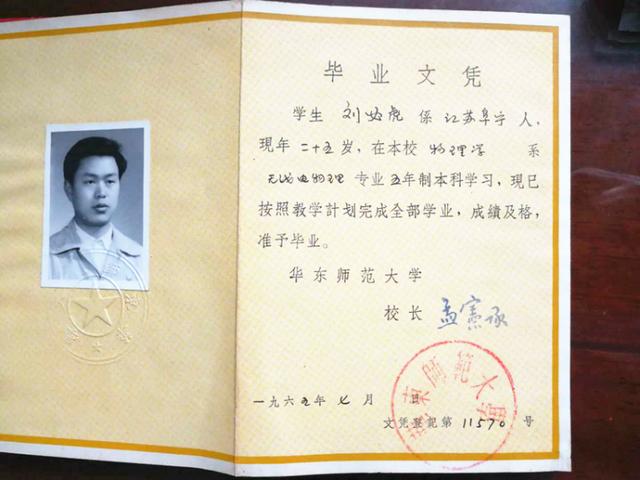 毕业文凭
学生 刘如虎 係 江苏阜宁 人，
現年 二十五 岁，在本校 物理学 系
无线电物理 专业 五 年制本科学习，現已
按照教学計划完成全部学业，成績及格，
准予毕业。
华东师范大学
校长 孟憲承
一九六五年 七 月 日
文凭登記第 11570 号
華東師範大學